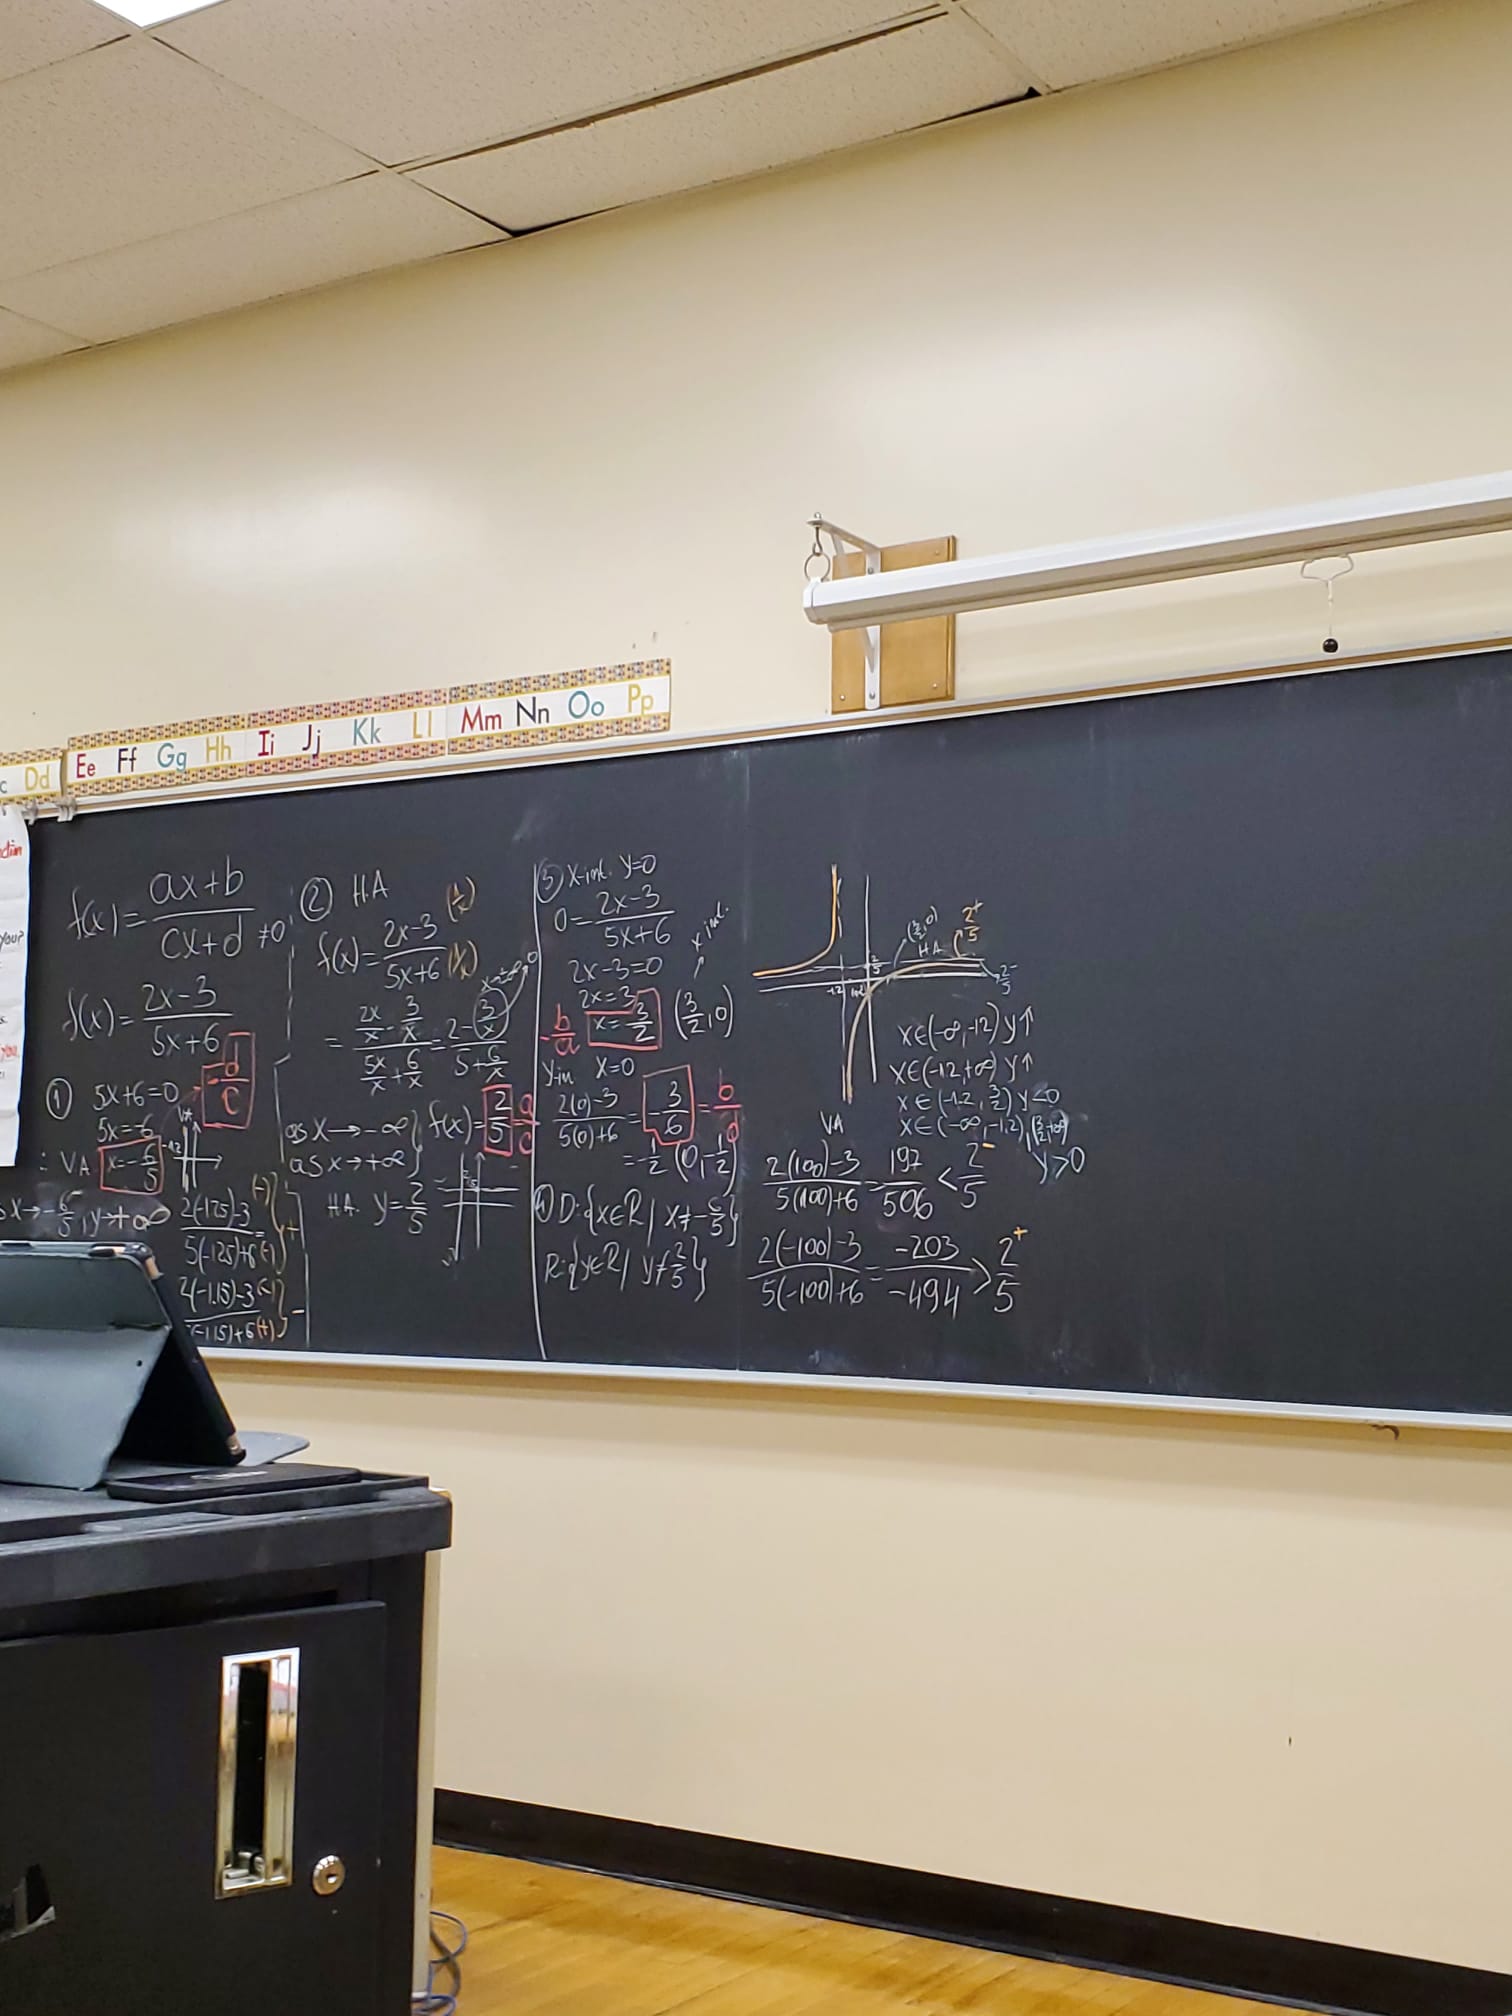 Dd Ee Ff Gg Hh Ii Jj Kk Ll Mm Nn Oo Pp
you?
you,
f(x) = (ax+b)/(cx+d) ≠0
f(x) = (2x-3)/(5x+6)
① 5x+6=0
-d/c
5x=-6
∴ VA x=-6/5
-1.2
x→-6/5, y→+∞
(2(-1.25)-3)/(5(-1.25)+6) = (-)/(-) +
(2(-1.15)-3)/((-1.15)+6) (-)/(+) -
② HA
f(x) = (2x-3)/(5x+6) (1/x)/(1/x)
= (2x/x - 3/x)/(5x/x + 6/x) = (2 - 3/x)/(5 + 6/x)
x→∞ 0
as x→-∞
as x→+∞ } f(x) = 2/5 a/c
HA. y=2/5
③ x-int. y=0
0 = (2x-3)/(5x+6)
2x-3=0
2x=3
-b/a x=3/2 (3/2, 0) x int.
y-in x=0
(2(0)-3)/(5(0)+6) = -3/6 = b/d
= -1/2 (0, -1/2)
④ D:{x∈R / x≠-6/5}
R:{y∈R / y≠2/5}
(3/2, 0)
HA
2/5⁺
2/5
2/5⁻
-1.2
VA
x∈(-∞,-1.2) y↑
x∈(-1.2,+∞) y↑
x∈(-1.2, 3/2) y<0
x∈(-∞,-1.2), (3/2,+∞)
y>0
(2(100)-3)/(5(100)+6) = 197/506 < 2/5⁻
(2(-100)-3)/(5(-100)+6) = -203/-494 > 2/5⁺